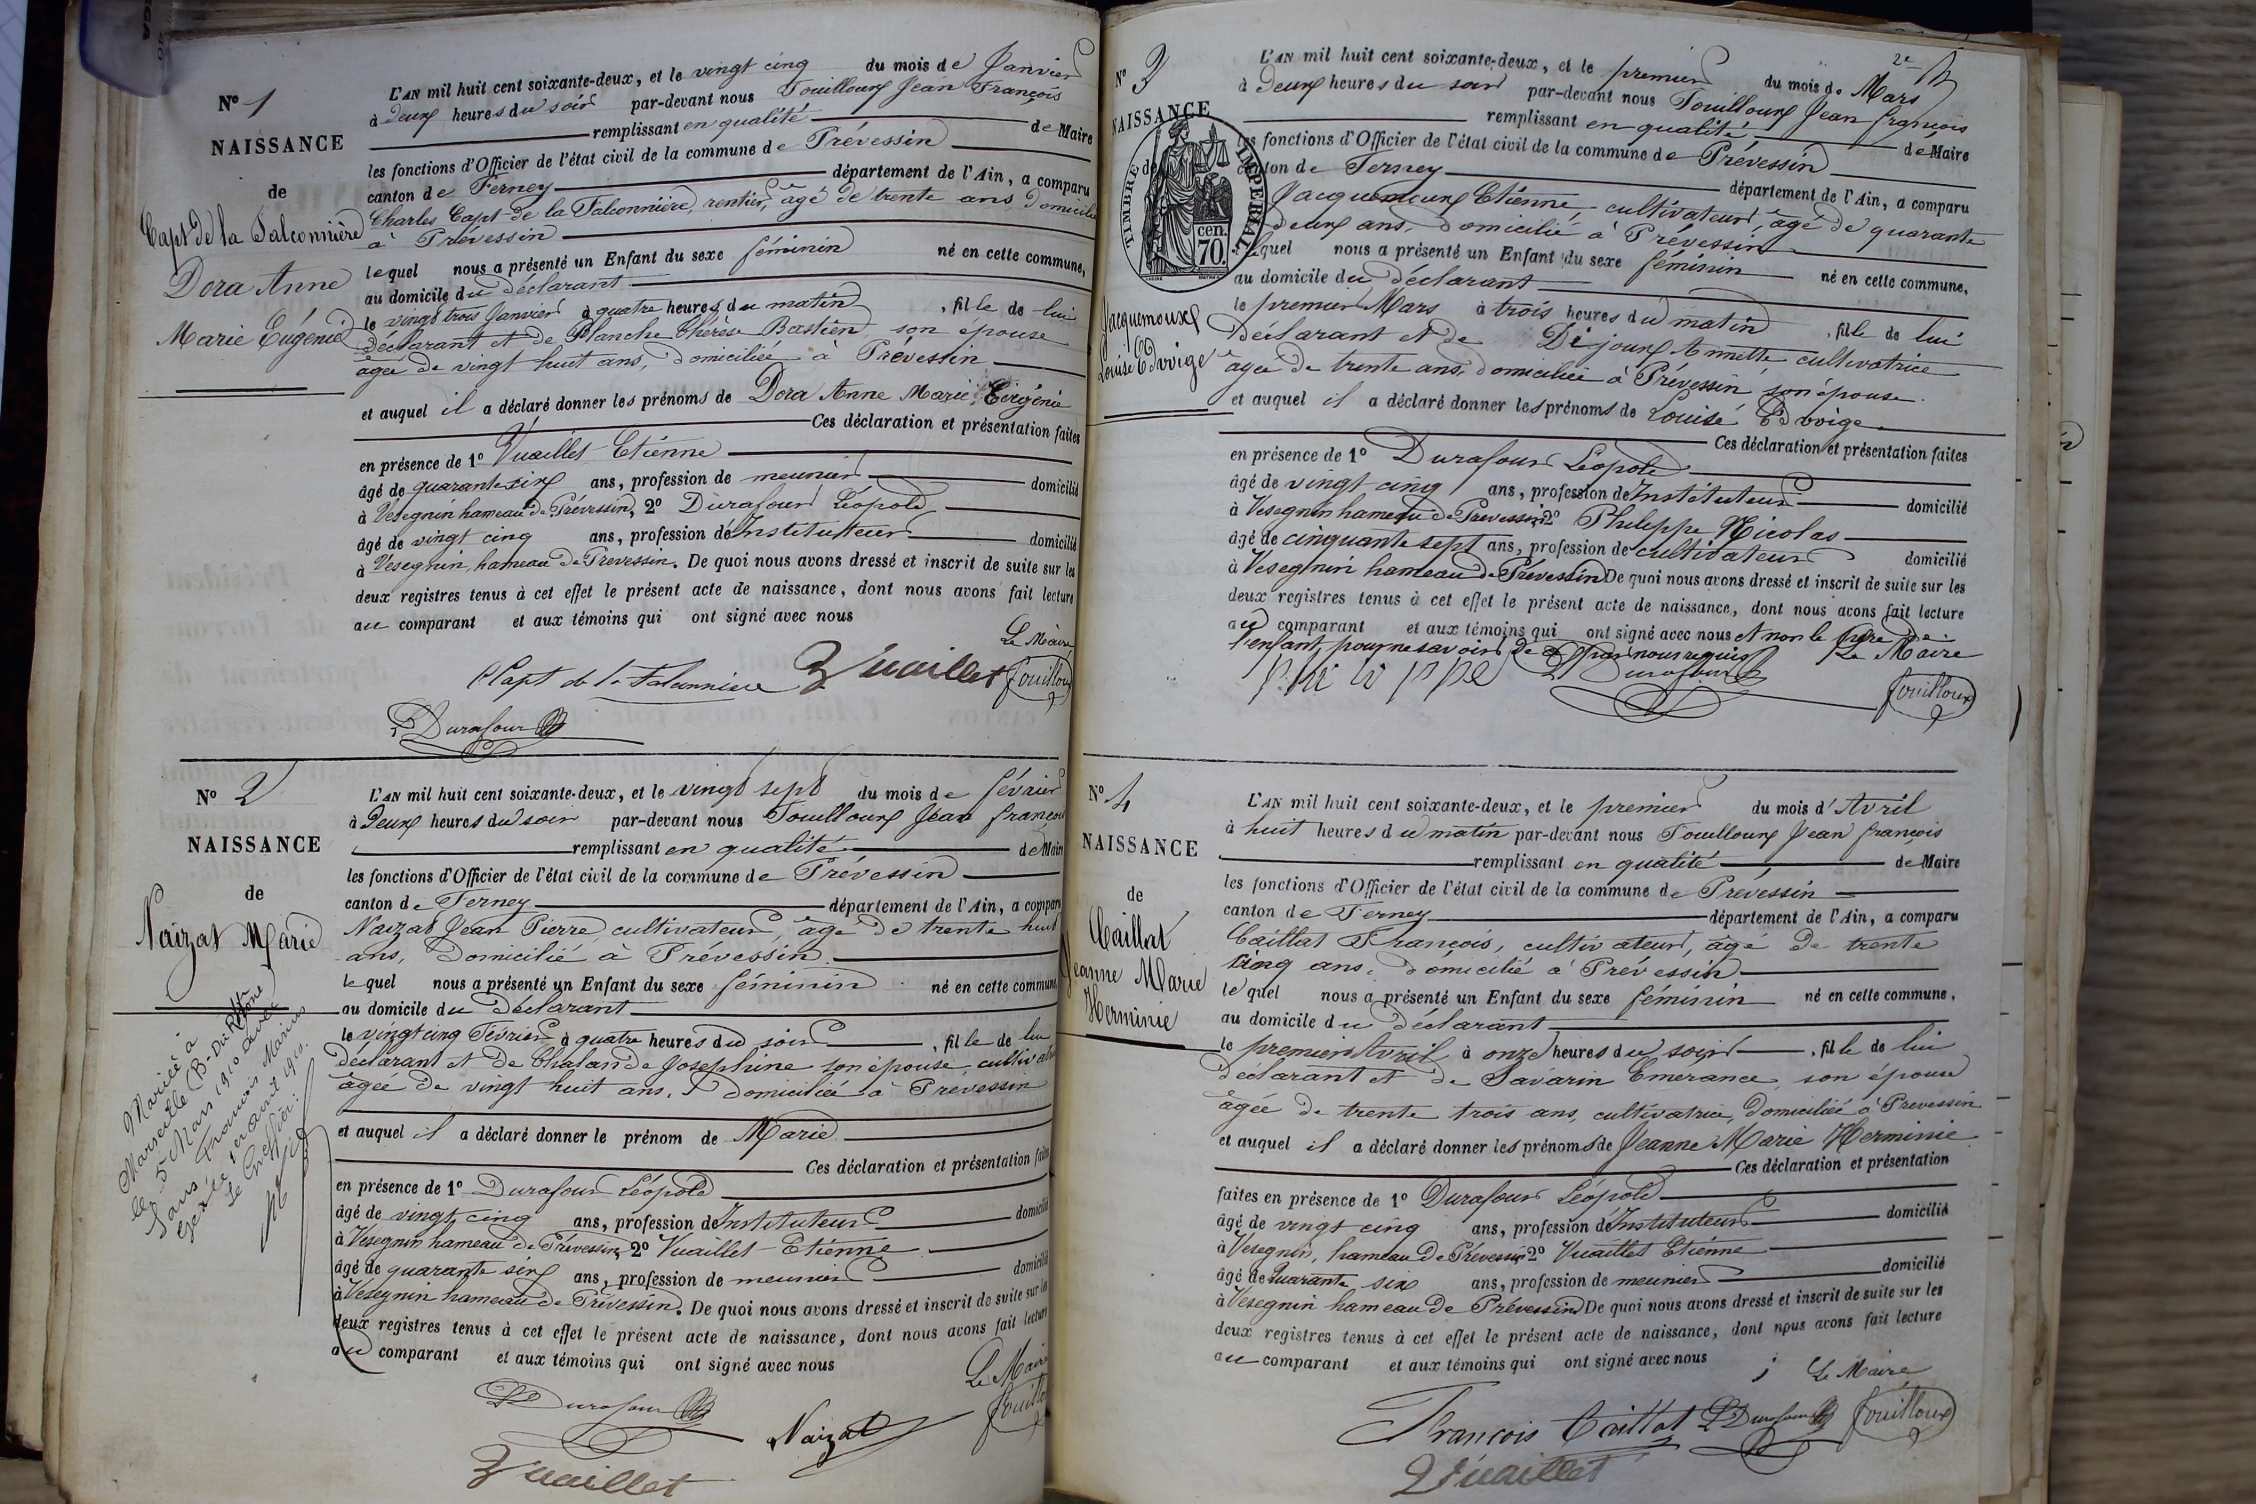 N° 1
NAISSANCE
de
Capt de la Falconnière
Dora Anne
Marie Eugénie
L'AN mil huit cent soixante-deux, et le vingt cinq du mois de Janvier
à deux heures du soir par-devant nous Fouilloux Jean François
remplissant en qualité de Maire
les fonctions d'Officier de l'état civil de la commune de Prévessin
canton de Ferney département de l'Ain, a comparu
Charles Capt de la Falconnière, rentier, âgé de trente ans, domicilié
à Prévessin
lequel nous a présenté un Enfant du sexe féminin né en cette commune,
au domicile du déclarant
le vingt trois Janvier à quatre heures du matin, fille de lui
déclarant et de Blanche Thérèse Bastien, son épouse
âgée de vingt huit ans, domiciliée à Prévessin
et auquel il a déclaré donner les prénoms de Dora Anne Marie Eugénie
Ces déclaration et présentation faites
en présence de 1° Vuaillet Etienne
âgé de quarante six ans, profession de meunier domicilié
à Vesegnin hameau de Prévessin, 2° Durafour Léopold
âgé de vingt cinq ans, profession de Instituteur domicilié
à Vesegnin, hameau de Prevessin. De quoi nous avons dressé et inscrit de suite sur les
deux registres tenus à cet effet le présent acte de naissance, dont nous avons fait lecture
au comparant et aux témoins qui ont signé avec nous
Le Maire
C Capt de la Falconniere Vuaillet Fouilloux
Durafour
N° 2
NAISSANCE
de
Naizat Marie
Mariée à
Marseille
le 5 Mars 1910 avec
L'AN mil huit cent soixante-deux, et le vingt sept du mois de février
à Deux heures du soir par-devant nous Fouilloux Jean françois
remplissant en qualité de Maire
les fonctions d'Officier de l'état civil de la commune de Prévessin
canton de Ferney département de l'Ain, a comparu
Naizat Jean Pierre, cultivateur, âgé de trente huit
ans, domicilié à Prévessin
lequel nous a présenté un Enfant du sexe féminin né en cette commune,
au domicile du Déclarant
le vingt cinq Février à quatre heures du soir, fille de lui
déclarant et de Chalande Josephine son épouse, cultivatrice
âgée de vingt huit ans, domiciliée à Prevessin
et auquel il a déclaré donner le prénom de Marie
Ces déclaration et présentation faites
en présence de 1° Durafour Léopold
âgé de vingt cinq ans, profession de Instituteur domicilié
à Vesegnin hameau de Prévessin, 2° Vuaillet Etienne
âgé de quarante six ans, profession de meunier domicilié
à Vesegnin hameau de Prévessin. De quoi nous avons dressé et inscrit de suite sur les
deux registres tenus à cet effet le présent acte de naissance, dont nous avons fait lecture
au comparant et aux témoins qui ont signé avec nous
Le Maire
Durafour Naizat Fouilloux
Vuaillet
2e
N° 3
NAISSANCE
de
TIMBRE IMPERIAL
70. cen.
Jacquemoux
Louise Edwige
L'AN mil huit cent soixante-deux, et le premier du mois de Mars
à deux heures du soir par-devant nous Fouilloux Jean françois
remplissant en qualité de Maire
les fonctions d'Officier de l'état civil de la commune de Prévessin
canton de Ferney département de l'Ain, a comparu
Jacquemoux Etienne, cultivateur, âgé de quarante
deux ans, domicilié à Prévessin
lequel nous a présenté un Enfant du sexe féminin né en cette commune,
au domicile du déclarant
le premier Mars à trois heures du matin, fille de lui
déclarant et de Dijoux Annette cultivatrice
âgée de trente ans, domiciliée à Prévessin son épouse.
et auquel il a déclaré donner les prénoms de Louise Edwige
Ces déclaration et présentation faites
en présence de 1° Durafour Léopold
âgé de vingt cinq ans, profession de Instituteur domicilié
à Vesegnin hameau de Prevessin 2° Philippe Nicolas
âgé de cinquante sept ans, profession de cultivateur domicilié
à Vesegnin hameau de Prévessin De quoi nous avons dressé et inscrit de suite sur les
deux registres tenus à cet effet le présent acte de naissance, dont nous avons fait lecture
au comparant et aux témoins qui ont signé avec nous et non le père de
l'enfant, pour ne savoir de ce par nous requis Le Maire
philippe Durafour Fouilloux
N° 4
NAISSANCE
de
Caillat
Jeanne Marie
Herminie
L'AN mil huit cent soixante-deux, et le premier du mois d'Avril
à huit heures du matin par-devant nous Fouilloux Jean françois
remplissant en qualité de Maire
les fonctions d'Officier de l'état civil de la commune de Prevessin
canton de Ferney département de l'Ain, a comparu
Caillat François, cultivateur, âgé de trente
cinq ans, domicilié à Prévessin
lequel nous a présenté un Enfant du sexe féminin né en cette commune,
au domicile du déclarant
le premier Avril à onze heures du soir, fille de lui
déclarant et de Savarin Emerance, son épouse
âgée de trente trois ans, cultivatrice, domiciliée à Prevessin
et auquel il a déclaré donner les prénoms de Jeanne Marie Herminie
Ces déclaration et présentation
faites en présence de 1° Durafour Léopold
âgé de vingt cinq ans, profession de Instituteur domicilié
à Vesegnin, hameau de Prévessin 2° Vuaillet Etienne
âgé de Quarante six ans, profession de meunier domicilié
à Vesegnin hameau de Prévessin De quoi nous avons dressé et inscrit de suite sur les
deux registres tenus à cet effet le présent acte de naissance, dont nous avons fait lecture
au comparant et aux témoins qui ont signé avec nous
Le Maire
François Caillat Durafour Fouilloux
Vuaillet